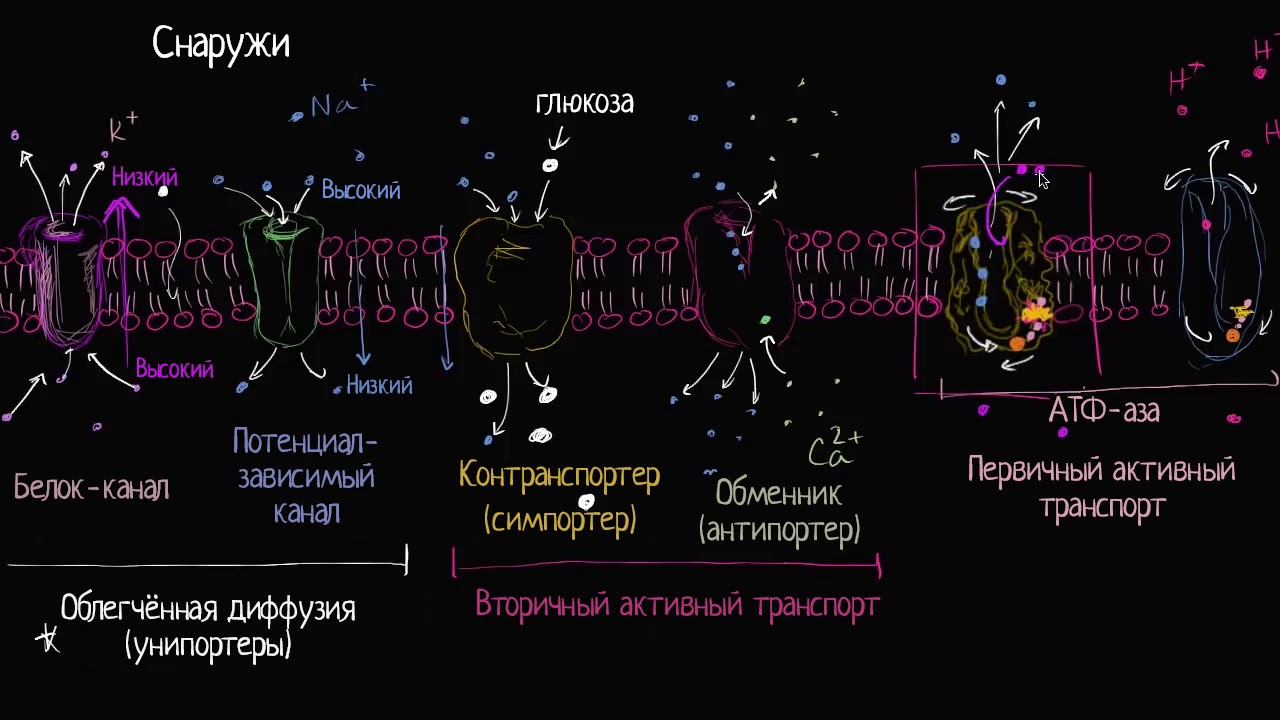 Снаружи
H+
H+
H
Na+
глюкоза
K+
Низкий
Высокий
Высокий
Низкий
АТФ-аза
Потенциал-
зависимый
канал
Ca2+
Белок-канал
Контранспортер
(симпортер)
Обменник
(антипортер)
Первичный активный
транспорт
Облегчённая диффузия
(унипортеры)
Вторичный активный транспорт